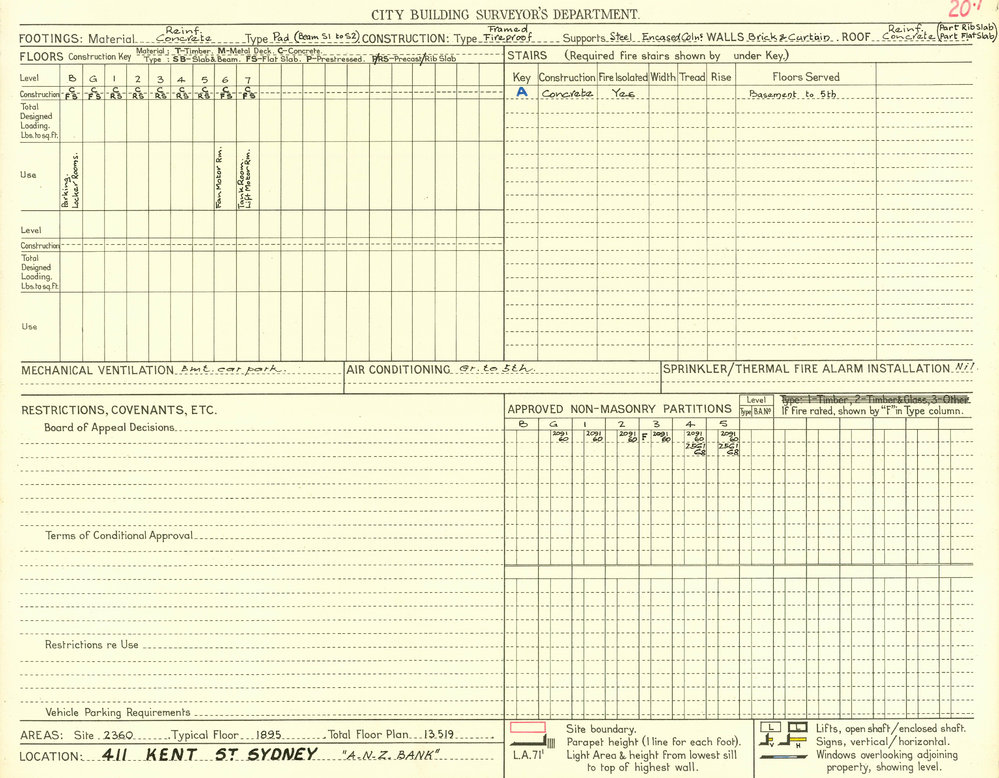 20.1
CITY BUILDING SURVEYOR'S DEPARTMENT.
FOOTINGS: Material Reinf. Concrete Type Pad (Beam S1 to S2) CONSTRUCTION: Type Framed, Fireproof Supports Steel Encased Colns WALLS Brick & Curtain. ROOF Reinf. Concrete (Part Rib Slab) (Part Flat Slab)
FLOORS Construction Key Material: T-Timber, M-Metal Deck, C-Concrete.
Type: SB-Slab & Beam. FS-Flat Slab. P-Prestressed. RS-Precast/Rib Slab
Level B G 1 2 3 4 5 6 7
Construction C FS C FS C RS C RS C RS C RS C RS C FS C FS
Total
Designed
Loading.
Lbs. to sq. ft.
Use Parking. Locker Rooms. Fan Motor Rm. Tank Room. Lift Motor Rm.
Level
Construction
Total
Designed
Loading.
Lbs. to sq. ft.
Use
STAIRS (Required fire stairs shown by under Key.)
Key Construction Fire Isolated Width Tread Rise Floors Served
A Concrete Yes Basement to 5th
MECHANICAL VENTILATION Bmt. car park. AIR CONDITIONING Gr. to 5th. SPRINKLER/THERMAL FIRE ALARM INSTALLATION Nil.
RESTRICTIONS, COVENANTS, ETC.
Board of Appeal Decisions
Terms of Conditional Approval
Restrictions re Use
Vehicle Parking Requirements
APPROVED NON-MASONRY PARTITIONS Level Type B.A. Nº Type: 1-Timber, 2-Timber & Glass, 3-Other.
If Fire rated, shown by "F" in Type column.
B G 1 2 3 4 5
2091 60 2091 60 2091 60 F 2091 60 2091 60 2091 60
2561 68 2561 68
AREAS: Site 2360 Typical Floor 1895 Total Floor Plan 13,519
LOCATION: 411 KENT ST. SYDNEY "A.N.Z. BANK"
Site boundary.
Parapet height (1 line for each foot).
L.A. 71' Light Area & height from lowest sill
to top of highest wall.
L L Lifts, open shaft/enclosed shaft.
V H Signs, vertical/horizontal.
Windows overlooking adjoining
property, showing level.